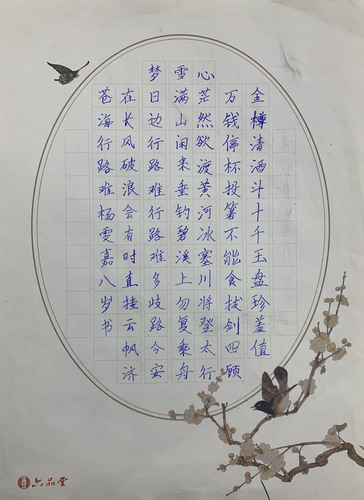 金樽清酒斗十千玉盘珍盖值
万钱停杯投箸不能食拔剑四顾
心茫然欲渡黄河冰塞川将登太行
雪满山闲来垂钓碧溪上勿复乘舟
梦日边行路难行路难多歧路今安
在长风破浪会有时直挂云帆济
苍海行路难杨雯嘉八岁书
六品堂